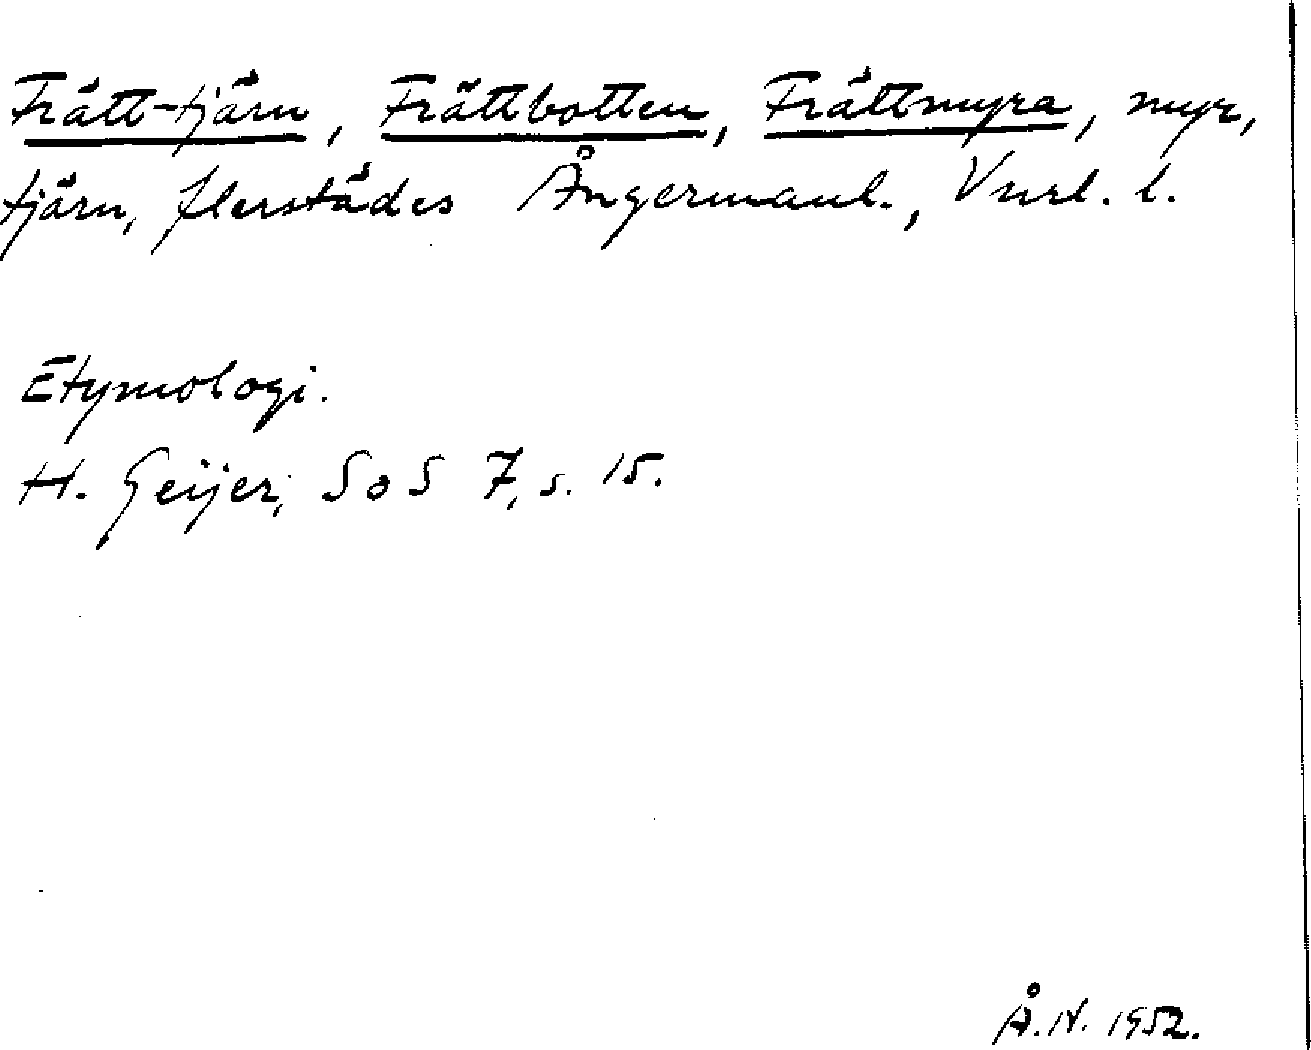 Frätt-tjärn, Frättbotten, Frättmyra, myr,
tjärn, flerstädes Ångermanl., Vnrl. l.
Etymologi.
H. Geijer, SoS 7, s. 15.
Å.N. 1952.